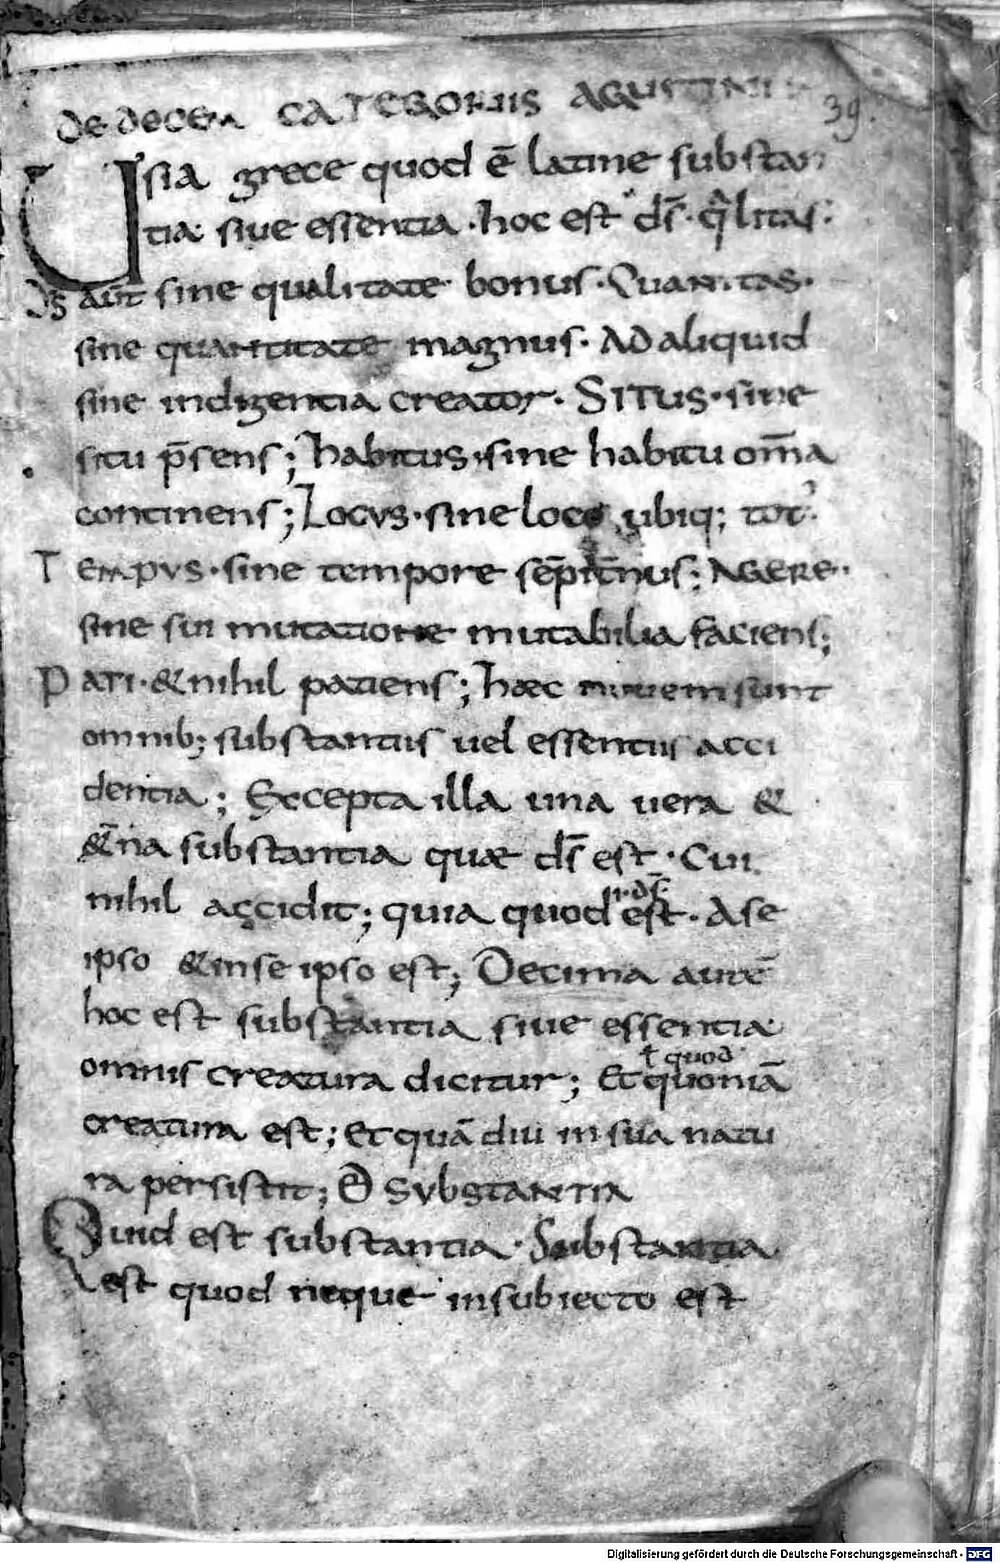 DE DECEM CATEGORIIS AGUSTINI
39.
Usia grece quod ē latine substan
tia siue essentia · hoc est d̄s · q̄litas·
D̄s aūt sine qualitate bonus · Quantitas ·
sine quantitate magnus · Ad aliquid
sine indigentia creator · SITUS · sine
situ p̄sens ; habitus · sine habitu om̄a
continens ; Locus · sine loco ubiq; tot᾽
Tempus · sine tempore sēpit̄nus ; AGERE ·
sine sui mutatione mutabilia faciens ;
PATI · & nihil patiens ; haec nouem sunt
omnib; substantiis uel essentiis acci
dentia ; Excepta illa una uera &
&̄na substantia quae d̄s est · Cui
nihil accidit ; quia quod est · A se
ipso & in se ipso est ; Decima autē
hoc est substantia siue essentia
ł quod
omnis creatura dicitur ; Et quoniā
creatura est ; Et quā diu in sua natu
ra persistit ; DE SUBSTANTIA
Quid est substantia · Substantia
est quod neque in subiecto est
Digitalisierung gefördert durch die Deutsche Forschungsgemeinschaft - DFG